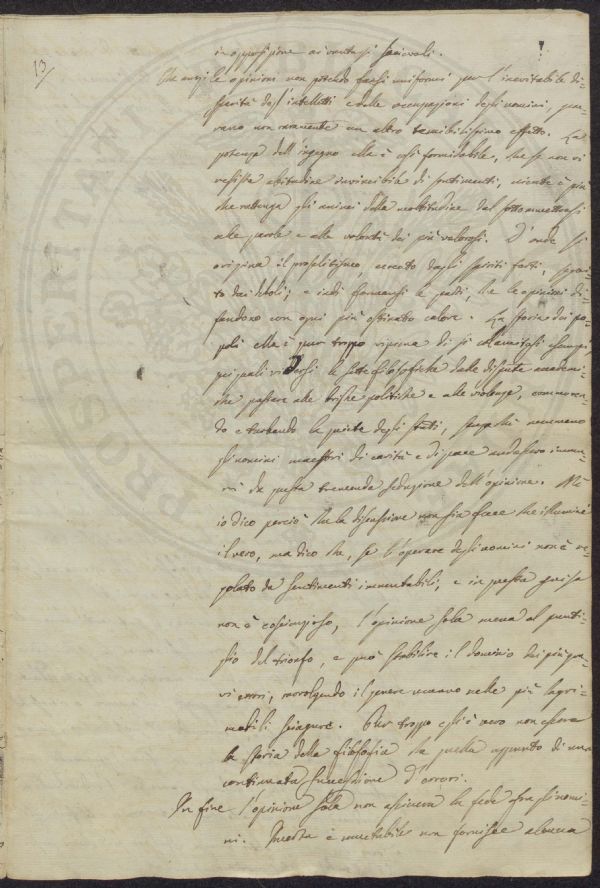 13
in opposizione ai contrasti socievoli.
Che anzi le opinioni non potendo farsi uniformi per l'inevitabile di=
sparità degl'intelletti e delle occupazioni degli uomini, pro=
vano non raramente un altro terribilissimo effetto. La
potenza dell'ingegno ella è così formidabile, che se non vi
resista abitudine invincibile di sentimenti, niente è più
che rattenga gli animi della moltitudine dal sottomettersi
alle parole e alle volontà dei più valorosi. D'onde si
origina il proselitismo, cercato dagli spiriti forti, segui=
to dai deboli; e indi formansi le parti, che le opinioni di=
fendono con ogni più ostinato calore. La storia dei po=
poli ella è pur troppo ripiena di sì calamitosi esempi,
pei quali videsi le sette filosofiche dalle dispute accademi=
che passare alle brighe politiche e alle violenze, commoven=
do e turbando la quiete degli stati, senza che nemmeno
gli uomini maestri di carità e di pace andassero immu=
ni da questa tremenda seduzione dell'opinione. Nè
io dico perciò che la discussione non sia face che illumini
il vero, ma dico che, se l'operare degli uomini non è re=
golato da sentimenti immutabili, e in questa guisa
non è coscienzioso, l'opinione sola mena al punti=
glio del trionfo, e può stabilire il dominio dei più gra=
vi errori, ravvolgendo il genere umano nelle più lagri=
mabili sciagure. Pur troppo egli è vero non essere
la storia della filosofia che quella appunto di una
continuata successione d'errori.
In fine l'opinione sola non assicura la fede fra gli uomi=
ni. Incerta e mutabile non fornisce alcuna
PROSPERITAT